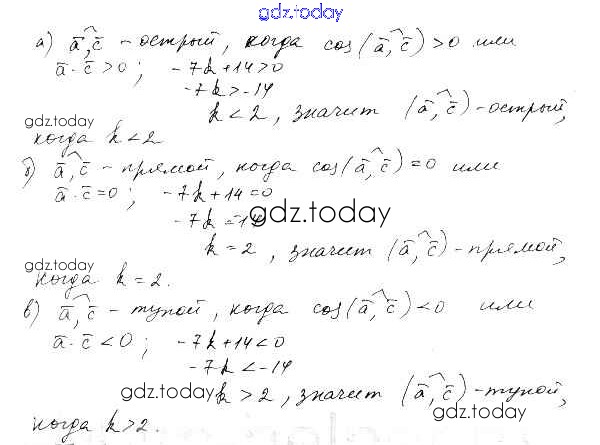 gdz.today
а) a̅,c̅ - острый, когда cos(a̅,c̅)>0 или
a̅·c̅>0; -7k+14>0
-7k>-14
k<2, значит (a̅,c̅)-острый,
gdz.today
когда k<2
б) a̅,c̅ - прямой, когда cos(a̅,c̅)=0 или
a̅·c̅=0; -7k+14=0
gdz.today
-7k=-14
k=2, значит (a̅,c̅)-прямой,
gdz.today
когда k=2.
в) a̅,c̅ - тупой, когда cos(a̅,c̅)<0 или
a̅·c̅<0; -7k+14<0
-7k<-14
gdz.today k>2, значит (a̅,c̅)-тупой,
gdz.today
когда k>2.